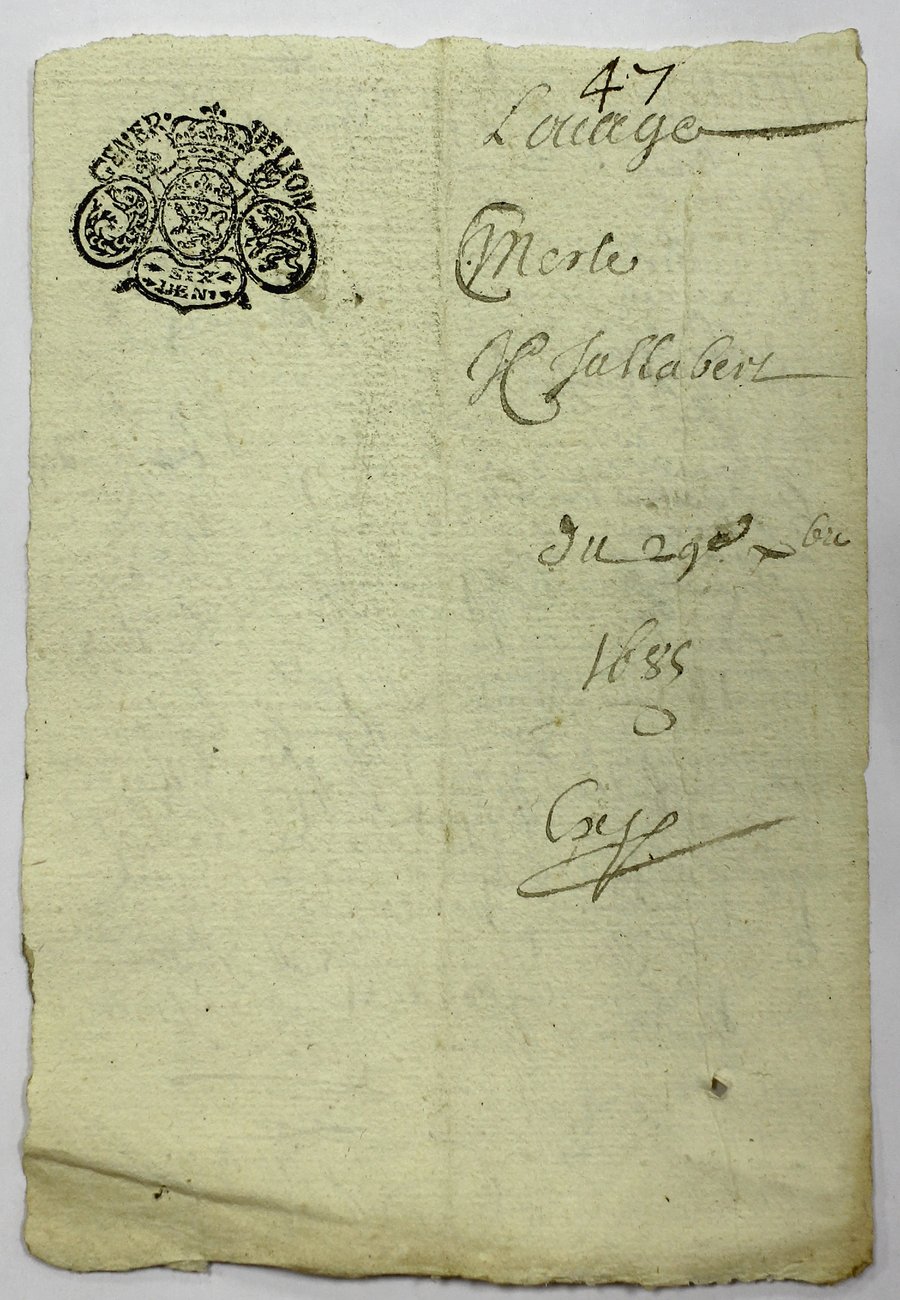 GENER. DE LYON
SIX
DEN.
47
Louage
Merle
Jallabert
du 29e xbre
1685